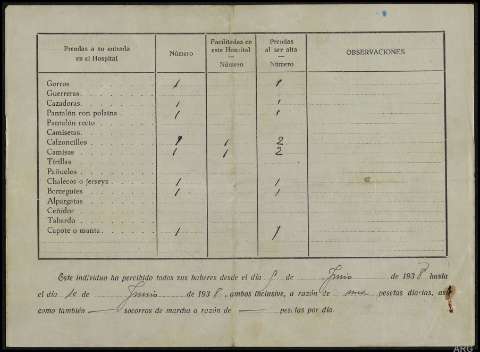 Prendas a su entrada en el Hospital Número Facilitadas en este Hospital — Número Prendas al ser alta — Número OBSERVACIONES
Gorros 1 1
Guerreras
Cazadoras 1 1
Pantalón con polaina 1 1
Pantalón recto
Camisetas
Calzoncillos 1 1 2
Camisas 1 1 2
Toallas
Pañuelos
Chalecos o jerseys 1 1
Borceguíes 1 1
Alpargatas
Ceñidor
Tabardo
Capote o manta 1 1
Este individuo ha percibido todos sus haberes desde el día 9 de Junio de 1938 hasta
el día 10 de Junio de 1938, ambos inclusive, a razón de pesetas diarias, así
como también — socorros de marcha a razón de — pesetas por día.
ARG